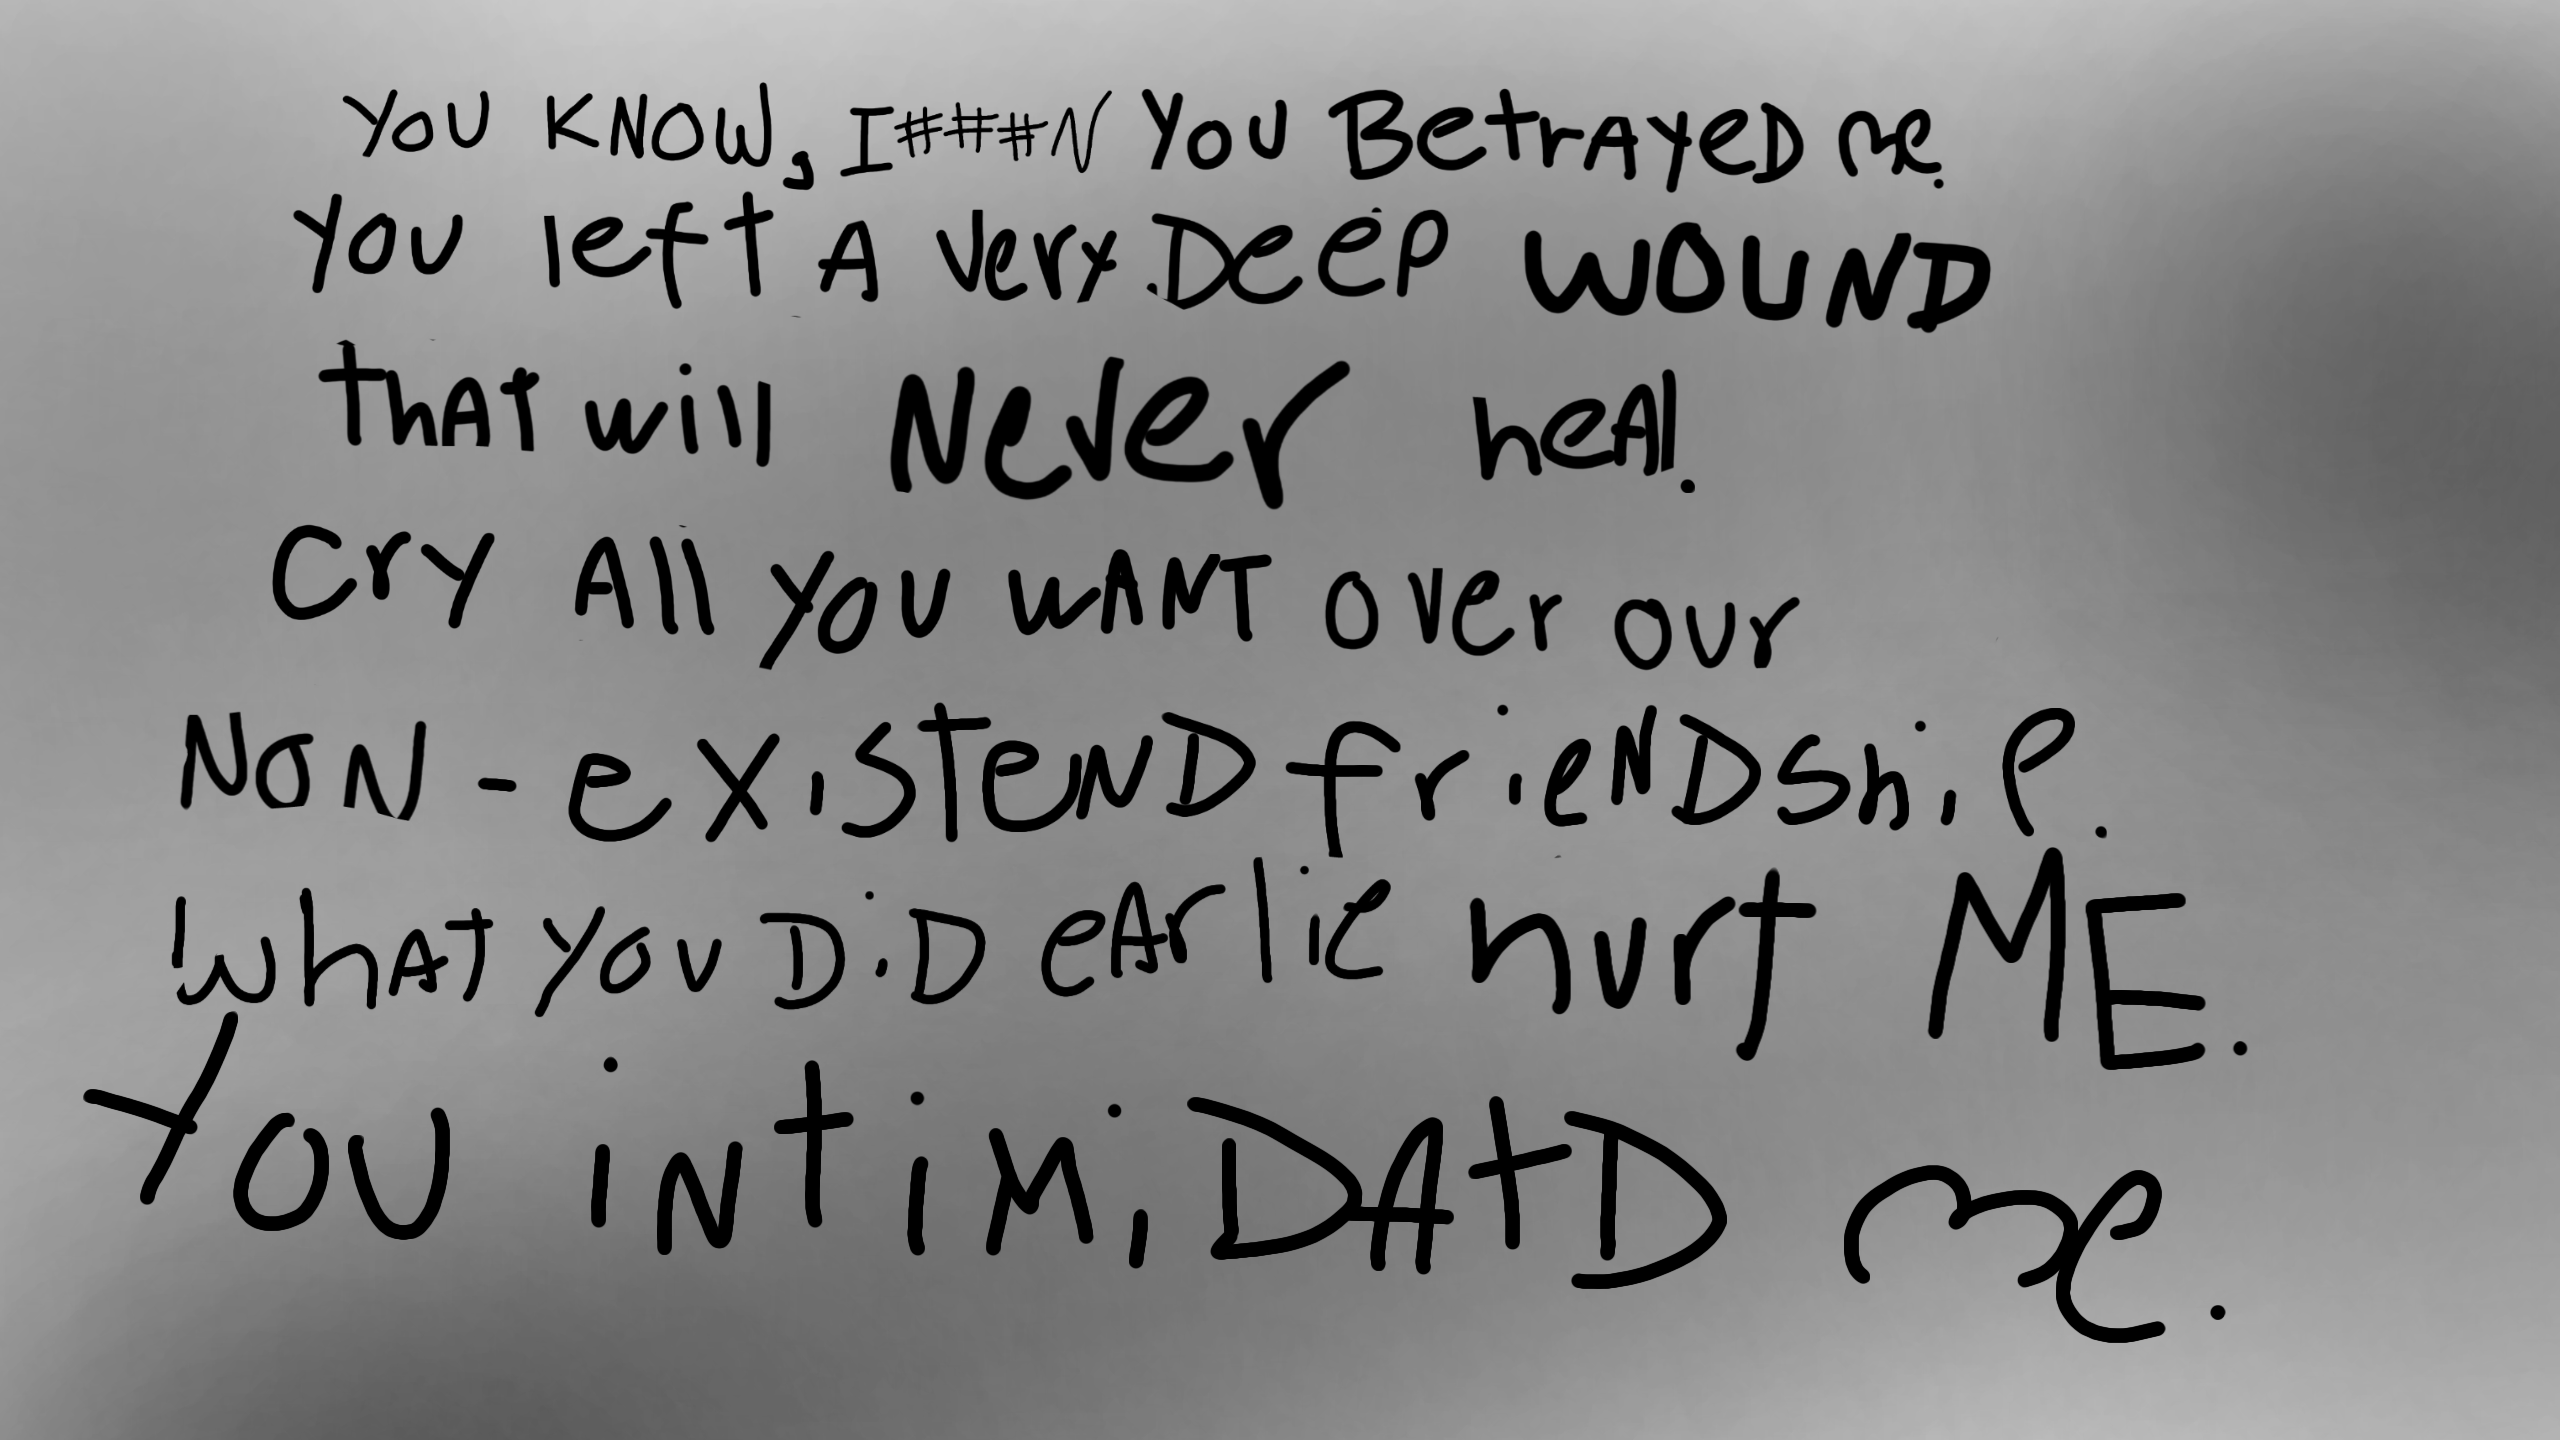 YOU KNOW, I###N YOU BetrAyeD me.
YOU left A very Deep WOUND
thAt will Never heAl.
Cry All YOU WANT over our
NON-existeND frieNDship.
WhAt you DiD eArlie hurt ME.
YOU iNtiMiDAtD me.